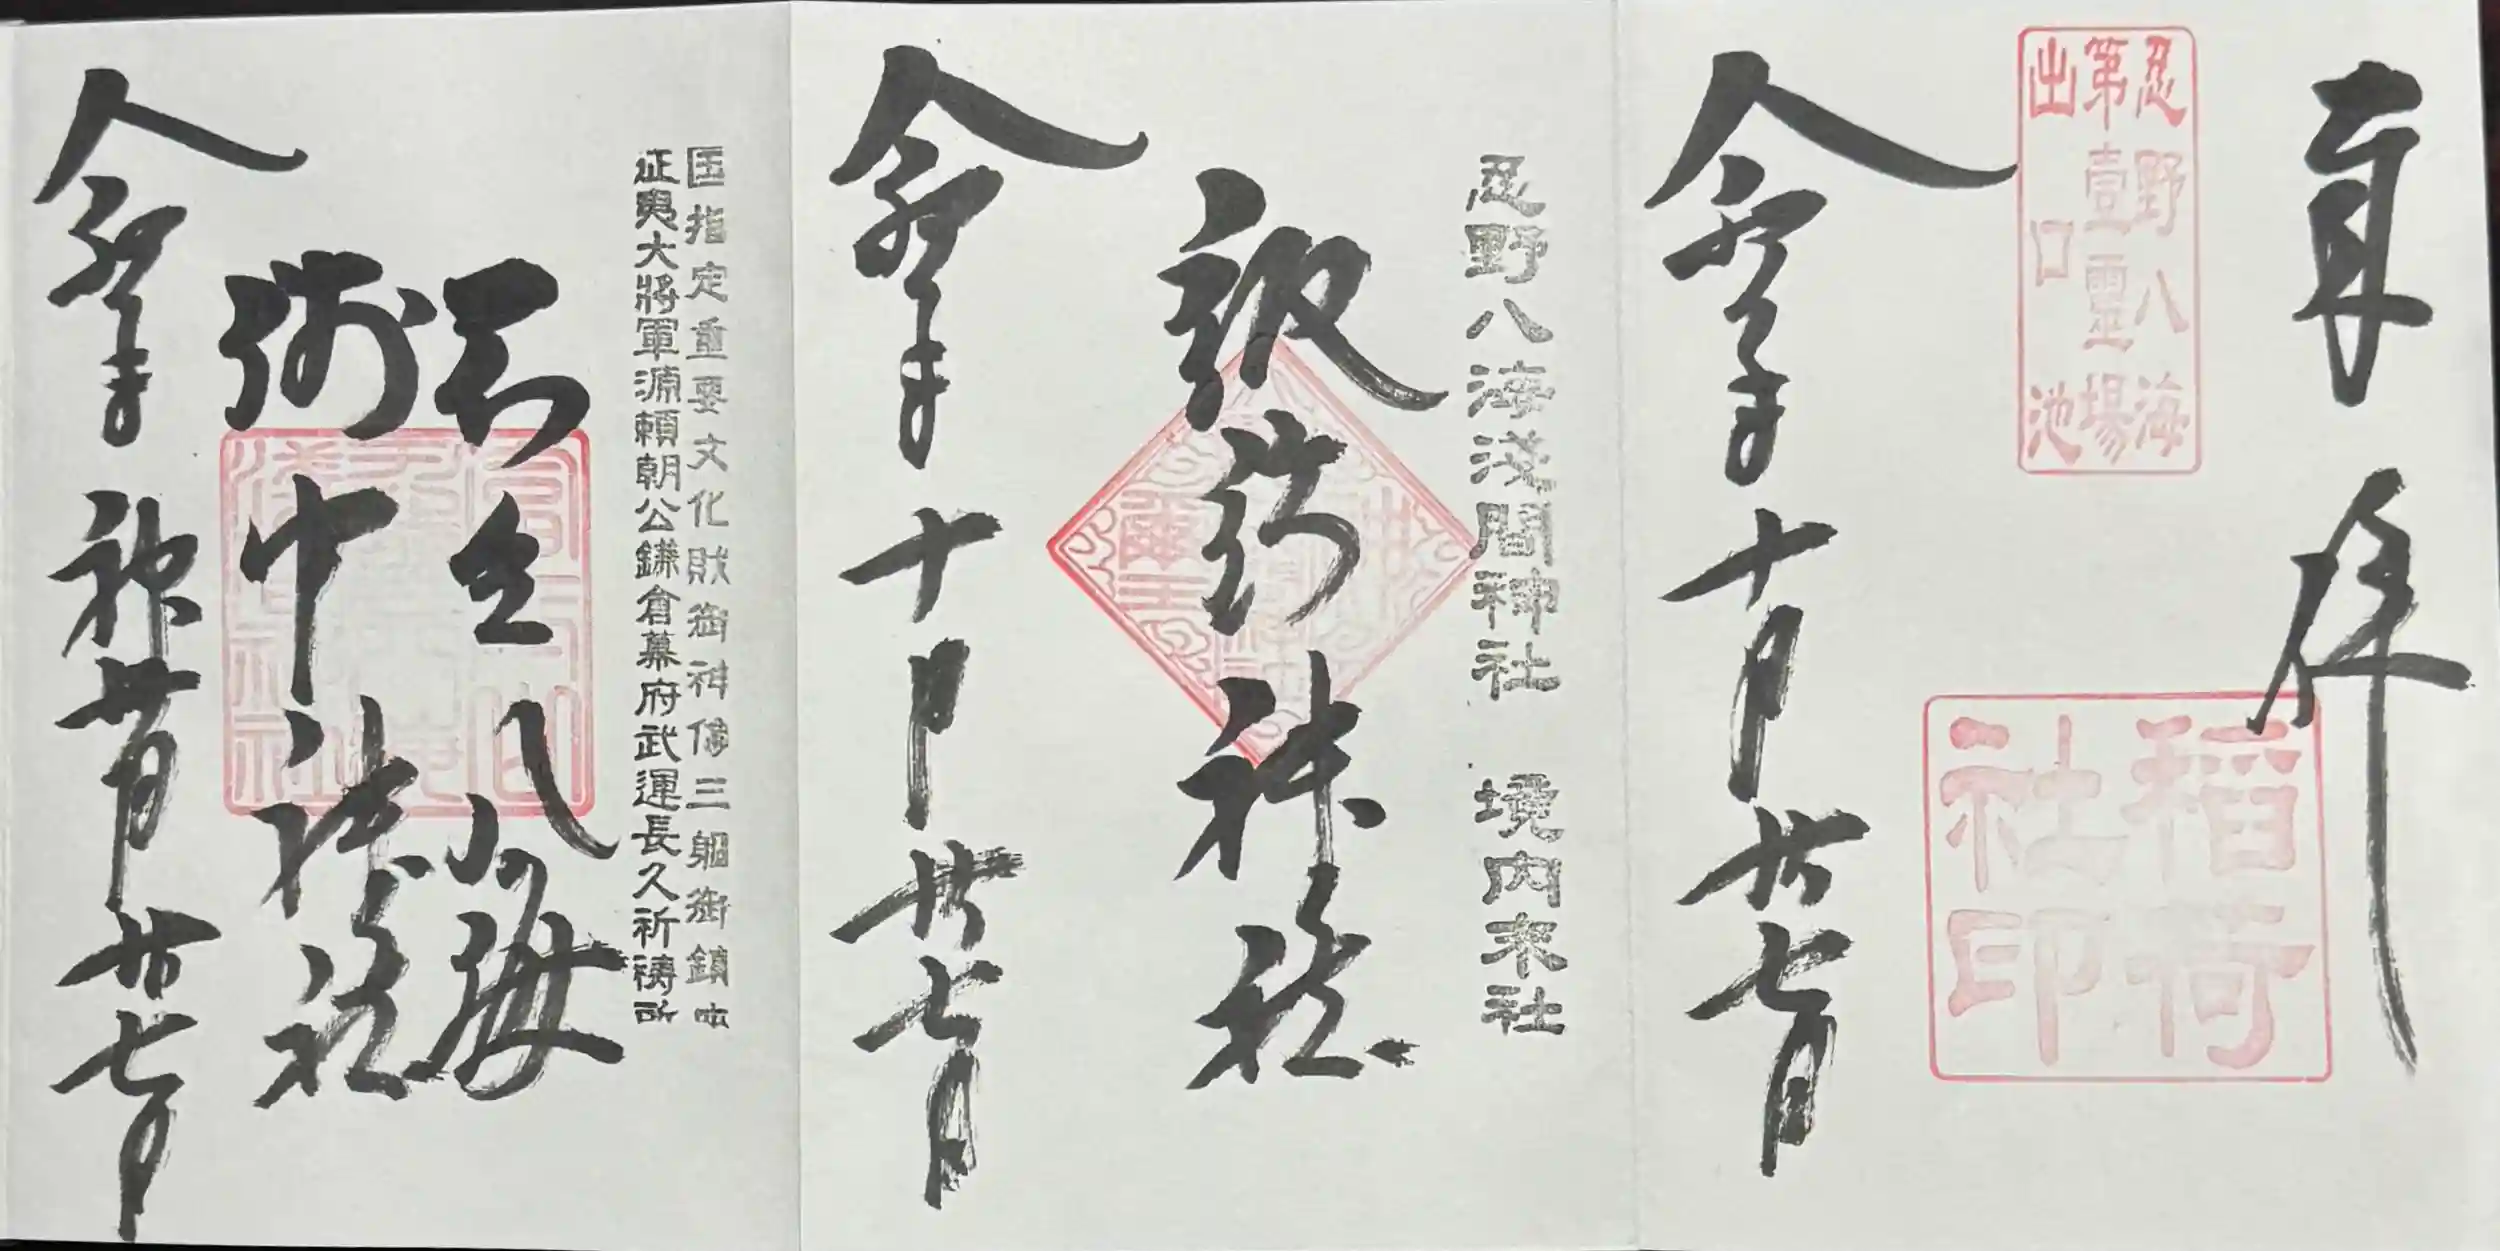 奉拝
忍野八海
第壹靈場
出口池
稲荷
社印
令和 年十月廿七日
忍野八海淺間神社 境内末社
諏訪神社
令和 年十月廿七日
国指定重要文化財御神像三躯御鎮座
征夷大將軍源頼朝公鎌倉幕府武運長久祈祷所
八海
中神社
令和 年神無月廿七日